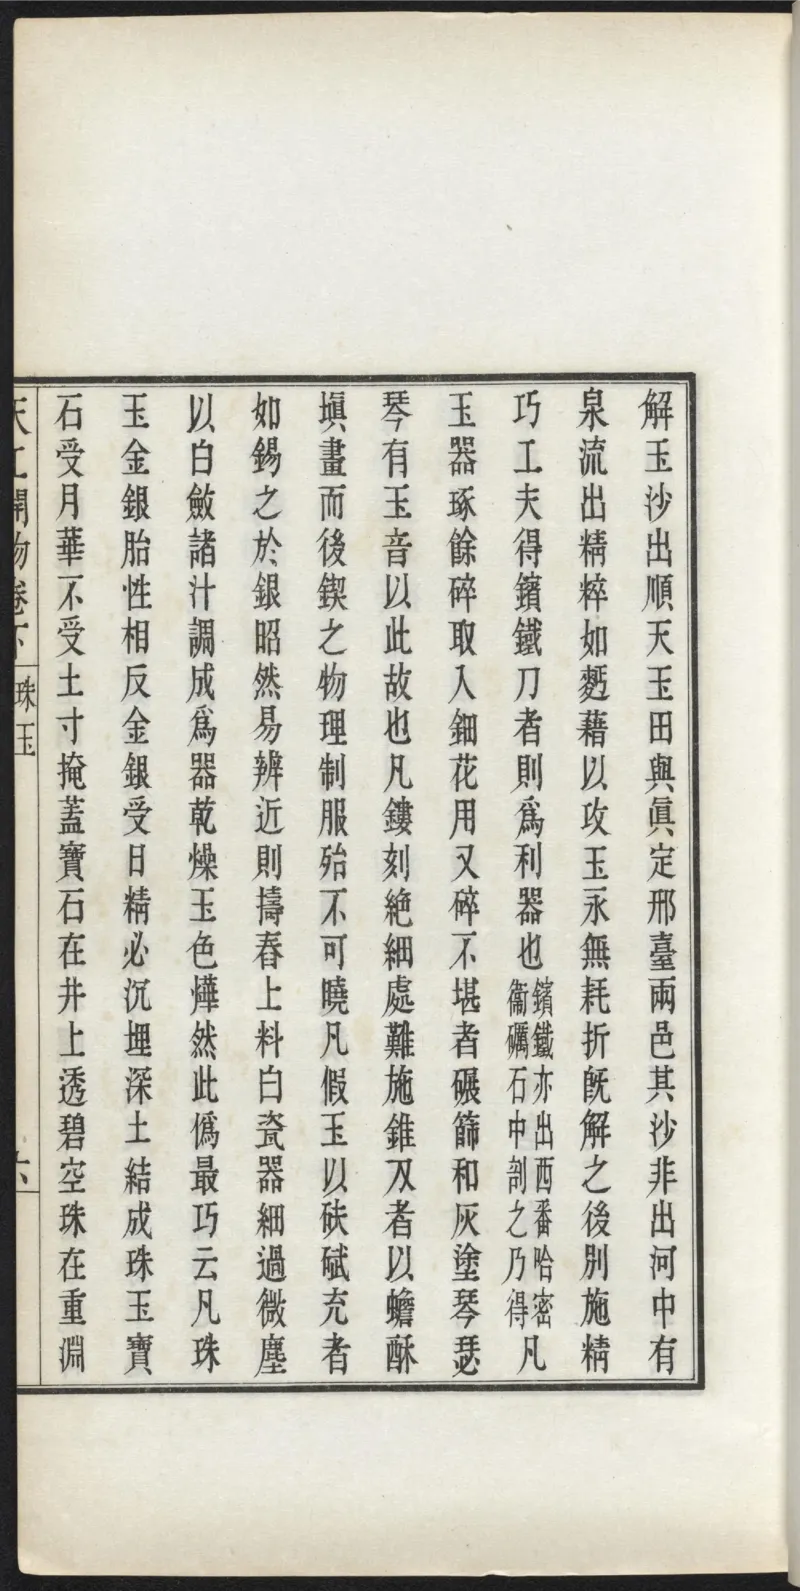 解玉沙出順天玉田與眞定邢臺兩邑其沙非出河中有
泉流出精粹如麪藉以攻玉永無耗折旣解之後別施精
巧工夫得鑌鐵刀者則爲利器也鑌鐵亦出西番哈密衞礪石中剖之乃得凡
玉器琢餘碎取入鈿花用又碎不堪者碾篩和灰塗琴瑟
琴有玉音以此故也凡鏤刻絶細處難施錐刄者以蟾酥
塡畫而後鍥之物理制服殆不可曉凡假玉以砆碔充者
如錫之於銀昭然易辨近則擣舂上料白瓷器細過微塵
以白斂諸汁調成爲器乾燥玉色燁然此僞最巧云凡珠
玉金銀胎性相反金銀受日精必沉埋深土結成珠玉寶
石受月華不受土寸掩蓋寶石在井上透碧空珠在重淵
天工開物卷下
珠玉
六